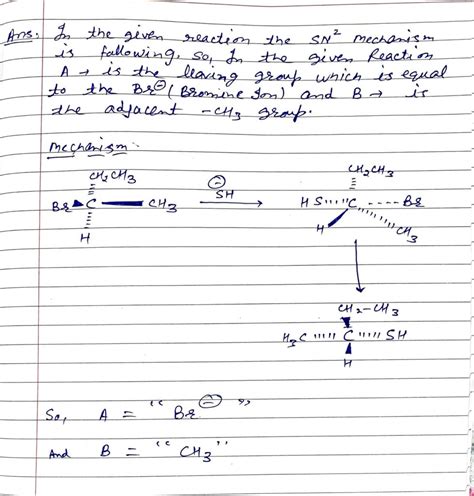 Ans. In the given reaction the SN² mechanism
is following, so, In the given Reaction
A → is the leaving group which is equal
to the Br⊖ (Bromine Ion) and B → is
the adjacent -CH3 group.
Mechanism:
CH2CH3
Br C CH3
H
⊖SH
CH2CH3
HS C Br
H CH3
CH2-CH3
H3C C SH
H
So, A = "Br⊖"
And B = "CH3"